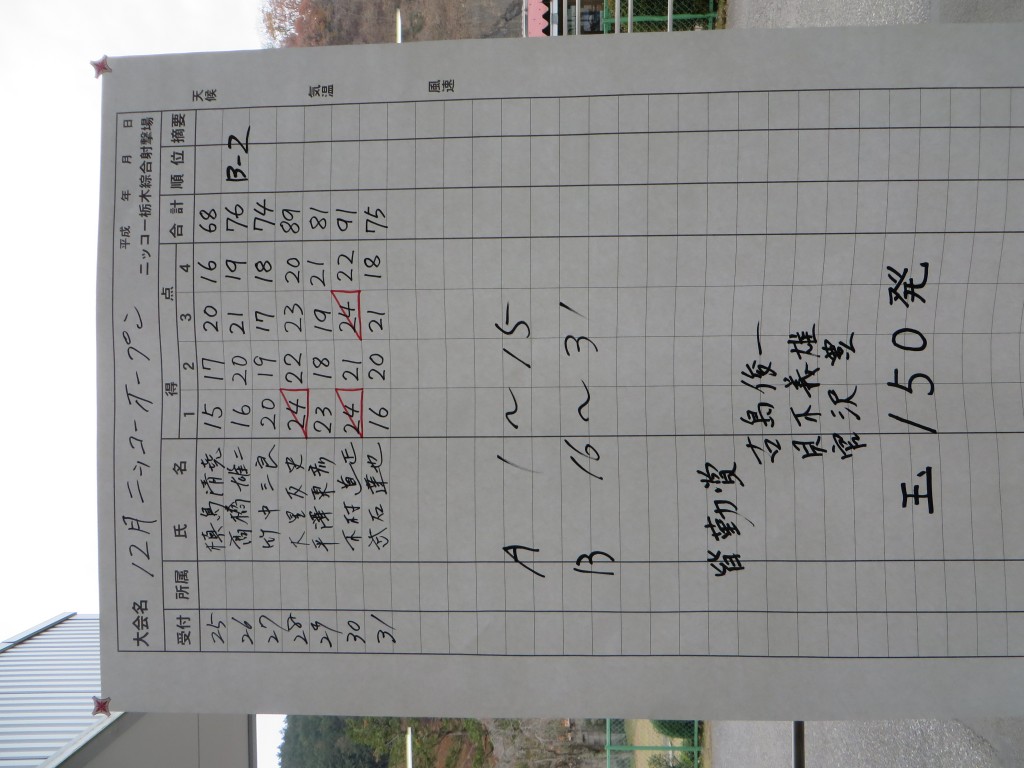 大会名 12月ニッコーオープン 平成 年 月 日
ニッコー栃木綜合射撃場
天候
気温
風速
受付 所属 氏名 得点 1 2 3 4 合計 順位 摘要
25 15 17 20 16 68
26 高橋雄二 16 20 21 19 76 B-2
27 竹中三良 20 19 17 18 74
28 大里及史 24 22 23 20 89
29 平澤東 23 18 19 21 81
30 木村道正 24 21 24 22 91
31 武石達也 16 20 21 18 75
A 1~15
B 16~31
皆勤賞
古島俊一
貝不義雄
沢豊
玉150発